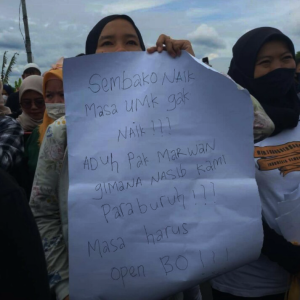 Sembako NAIK
Masa UMK gak
NAIK!!!
ADUh Pak MARWAN
gimana NASib kami
Para buruh!!!
Masa harus
open BO!!!